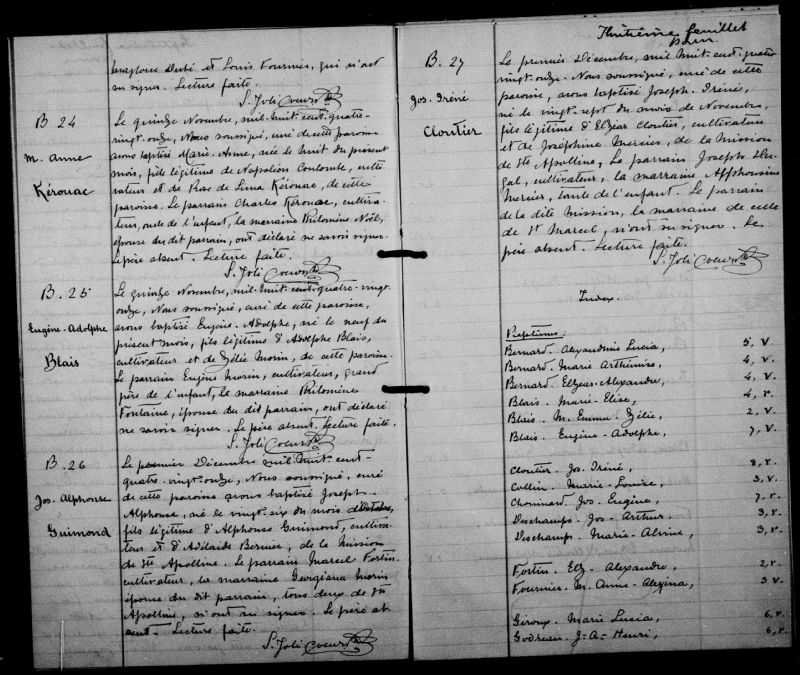 Dubé et Louis Fournier, qui n'ont
su signer. Lecture faite.
S. Joli Coeur Ptre
B. 24
M. Anne
Kérouac
Le quinze Novembre, mil-huit-cent-quatre-
vingt-onze, Nous soussigné, curé de cette paroisse
avons baptisé Marie-Anne, née le huit du présent
mois, fille légitime de Napoléon Coulombe, culti-
vateur et de Rose de Lima Kérouac, de cette
paroisse. Le parrain Charles Kérouac, cultiva-
teur, oncle de l'enfant, la marraine Philomène Noël,
épouse du dit parrain, ont déclaré ne savoir signer.
Le père absent. Lecture faite.
S. Joli Coeur Ptre
B. 25
Eugène-Adolphe
Blais
Le quinze Novembre, mil-huit-cent-quatre-vingt-
onze, Nous soussigné, curé de cette paroisse,
avons baptisé Eugène-Adolphe, né le neuf du
présent mois, fils légitime d'Adolphe Blais,
cultivateur et de Zélie Morin, de cette paroisse.
Le parrain Eugène Morin, cultivateur, grand
père de l'enfant, la marraine Philomène
Fontaine, épouse du dit parrain, ont déclaré
ne savoir signer. Le père absent. Lecture faite.
S. Joli Coeur Ptre
B. 26
Jos. Alphonse
Guimond
Le premier Décembre mil-huit-cent-
quatre-vingt-onze, Nous soussigné, curé
de cette paroisse avons baptisé Joseph-
Alphonse, né le vingt-six du mois
fils légitime d'Alphonse Guimond, cultiva-
teur et d'Adélaïde Bernier, de la Mission
de Ste Apolline. Le parrain Marcel Fortin,
cultivateur, la marraine Georgiana Morin
épouse du dit parrain, tous deux de Ste
Apolline, n'ont su signer. Le père ab-
sent. Lecture faite.
S. Joli Coeur Ptre
Huitième feuillet
B. 27
Jos. Iréné
Cloutier
Le premier Décembre, mil-huit-cent-quatre
vingt-onze. Nous soussigné, curé de cette
paroisse, avons baptisé Joseph-Iréné,
né le vingt-sept du mois de Novembre,
fils légitime d'Elzéar Cloutier, cultivateur
et de Joséphine Mercier, de la Mission
de Ste Apolline. Le parrain Joseph
cultivateur, la marraine Alphonsine
Mercier, tante de l'enfant. Le parrain
de la dite Mission, la marraine de celle
de St Marcel, n'ont su signer. Le
père absent. Lecture faite.
S. Joli Coeur Ptre
Index.
Baptêmes:
Bernard. Alexandrine Lucia, 5, v.
Bernard. Marie Arthémise, 4, v.
Bernard. Elzéar-Alexandre, 4, v.
Blais. Marie-Elise, 4, r.
Blais. M. Emma-Zélie, 2, v.
Blais. Eugène-Adolphe, 7, v.
Cloutier. Jos. Iréné, 8, r.
Collin. Marie-Louise, 3, v.
Chouinard. Jos. Eugène, 7, r.
Deschamps. Jos-Arthur, 3, r.
Deschamps. Marie-Alvine, 3, r.
Fortin. Elz-Alexandre, 2, r.
Fournier. M. Anne-Alexina, 3 v.
Giroux. Marie Lucia, 6, r.
Godreau. J-A-Henri, 6, r.